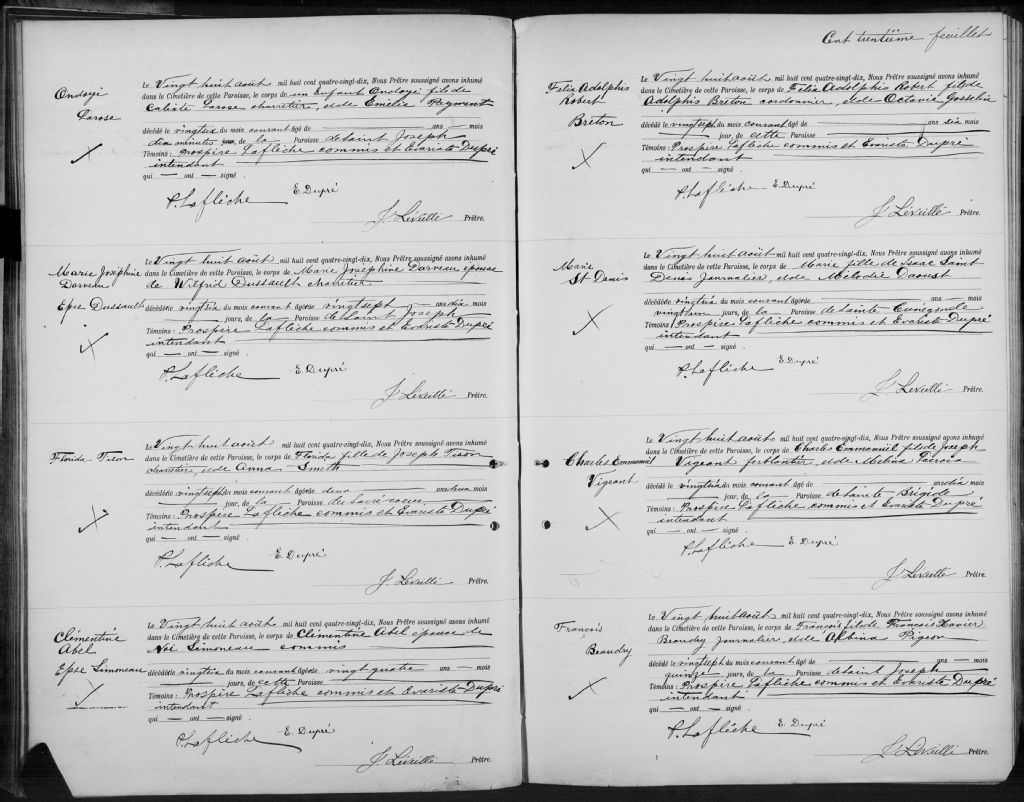 Ondoyé
Larose
Le Vingt huit août mil huit cent quatre-vingt-dix, Nous Prêtre soussigné avons inhumé
dans le Cimetière de cette Paroisse, le corps de un Enfant Ondoyé fils de
Calixte Larose charretier, et de Emélie Payment
décédé le vingtsix du mois courant âgé de — ans — mois
dix minutes jour, de la Paroisse de Saint Joseph
Témoins : Prospère Laflèche commis et Evariste Dupré
intendant
qui — ont — signé.
P. Laflèche E. Dupré
J. Léveillé Prêtre.
Marie Joséphine
Darveau
Epse Dussault
Le Vingt huit août mil huit cent quatre-vingt-dix, Nous Prêtre soussigné avons inhumé
dans le Cimetière de cette Paroisse, le corps de Marie Joséphine Darveau épouse
de Wilfrid Dussault charretier
décédéele vingtsix du mois courant âgée de vingtsept — ans six — mois
jours, de la Paroisse de Saint Joseph
Témoins : Prospère Laflèche commis et Evariste Dupré
intendant
qui — ont — signé.
P. Laflèche E. Dupré
J. Léveillé Prêtre.
Florida Tison
Le Vingt huit août mil huit cent quatre-vingt-dix, Nous Prêtre soussigné avons inhumé
dans le Cimetière de cette Paroisse, le corps de Florida fille de Joseph Tison
charretier, et de Anna Smith
décédéele vingtsept du mois courant âgée de deux ans deux mois
jour, de la Paroisse du Sacré coeur
Témoins : Prospère Laflèche commis et Evariste Dupré
intendant
qui — ont — signé.
P. Laflèche E. Dupré
J. Léveillé Prêtre.
Clémentine
Abel
Epse Simoneau
Le Vingt huit août mil huit cent quatre-vingt-dix, Nous Prêtre soussigné avons inhumé
dans le Cimetière de cette Paroisse, le corps de Clémentine Abel épouse de
Noé Simoneau commis
décédéele vingtsix du mois courant âgée de vingt quatre ans — mois
jours, de cette Paroisse
Témoins : Prospère Laflèche commis et Evariste Dupré
intendant
qui — ont — signé.
P. Laflèche E. Dupré
J. Léveillé Prêtre.
Cent trentième feuillet
Félix Adolphis
Robert
Breton
Le Vingt huit août mil huit cent quatre-vingt-dix, Nous Prêtre soussigné avons inhumé
dans le Cimetière de cette Paroisse, le corps de Félix Adolphis Robert fils de
Adolphis Breton cordonnier, et de Octavie Gosselin
décédé le vingtsept du mois courant âgé de — ans six mois
jour, de cette Paroisse
Témoins : Prospère Laflèche commis et Evariste Dupré
intendant
qui — ont — signé.
P. Laflèche E. Dupré
J. Léveillé Prêtre.
Marie
St Denis
Le Vingt huit août mil huit cent quatre-vingt-dix, Nous Prêtre soussigné avons inhumé
dans le Cimetière de cette Paroisse, le corps de Marie fille de Isaac Saint
Denis Journalier, et de Mélodie Daoust
décédéele vingtsix du mois courant âgée de — ans — mois
vingt un jours, de la Paroisse de Sainte Cunégonde
Témoins : Prospère Laflèche commis et Evariste Dupré
intendant
qui — ont — signé.
P. Laflèche E. Dupré
J. Léveillé Prêtre.
Charles Emmanuël
Vigeant
Le Vingt huit août mil huit cent quatre-vingt-dix, Nous Prêtre soussigné avons inhumé
dans le Cimetière de cette Paroisse, le corps de Charles Emmanuël fils de Joseph
Vigeant ferblantier, et de Mélina
décédé le vingtsix du mois courant âgé de — ans dix mois
jour, de la Paroisse de Sainte Brigide
Témoins : Prospère Laflèche commis et Evariste Dupré
intendant
qui — ont — signé.
P. Laflèche E. Dupré
J. Léveillé Prêtre.
François
Beaudry
Le Vingt huit août mil huit cent quatre-vingt-dix, Nous Prêtre soussigné avons inhumé
dans le Cimetière de cette Paroisse, le corps de François fils de François Xavier
Beaudry Journalier, et de Albina Pigeon
décédé le vingtsept du mois courant âgé de — ans — mois
quinze jours, de la Paroisse de Saint Joseph
Témoins : Prospère Laflèche commis et Evariste Dupré
intendant
qui — ont — signé.
P. Laflèche E. Dupré
J. Léveillé Prêtre.